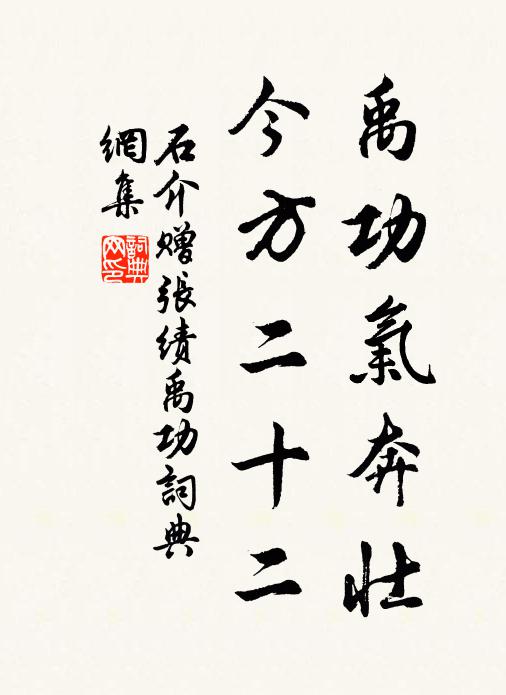 禹功氣奔壯
今方二十二
石介贈張績禹功詞典
網集
詞典
网印